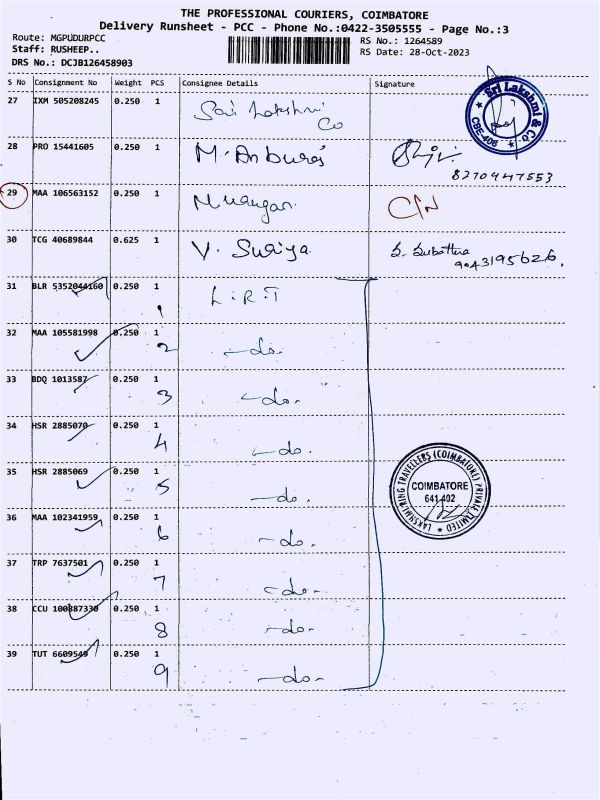 THE PROFESSIONAL COURIERS, COIMBATORE
Delivery Runsheet - PCC - Phone No.:0422-3505555 - Page No.:3
Route: MGPUDURPCC
RS No.: 1264589
Staff: RUSHEEP..
RS Date: 28-Oct-2023
DRS No.: DCJB126458903
S No Consignment No Weight PCS Consignee Details Signature
27 IXM 505208245 0.250 1 Sai Lakshmi Co
Sri Lakshmi & Co
CBE-406
28 PRO 15441605 0.250 1 M. Anburaj
8270447553
29 MAA 106563152 0.250 1 C/N
30 TCG 40689844 0.625 1 V. Suriya
9043195626.
31 BLR 5352044160 0.250 1 L.R.T
1
32 MAA 105581998 0.250 1 -do-
2
33 BDQ 1013587 0.250 1 -do-
3
34 HSR 2885070 0.250 1 -do-
4
35 HSR 2885069 0.250 1 -do-
5
LAKSHMI RING TRAVELLERS (COIMBATORE) PRIVATE LIMITED
COIMBATORE
641 402
36 MAA 102341959 0.250 1 -do-
6
37 TRP 7637501 0.250 1 -do-
7
38 CCU 100887330 0.250 1 -do-
8
39 TUT 6609549 0.250 1 -do-
9